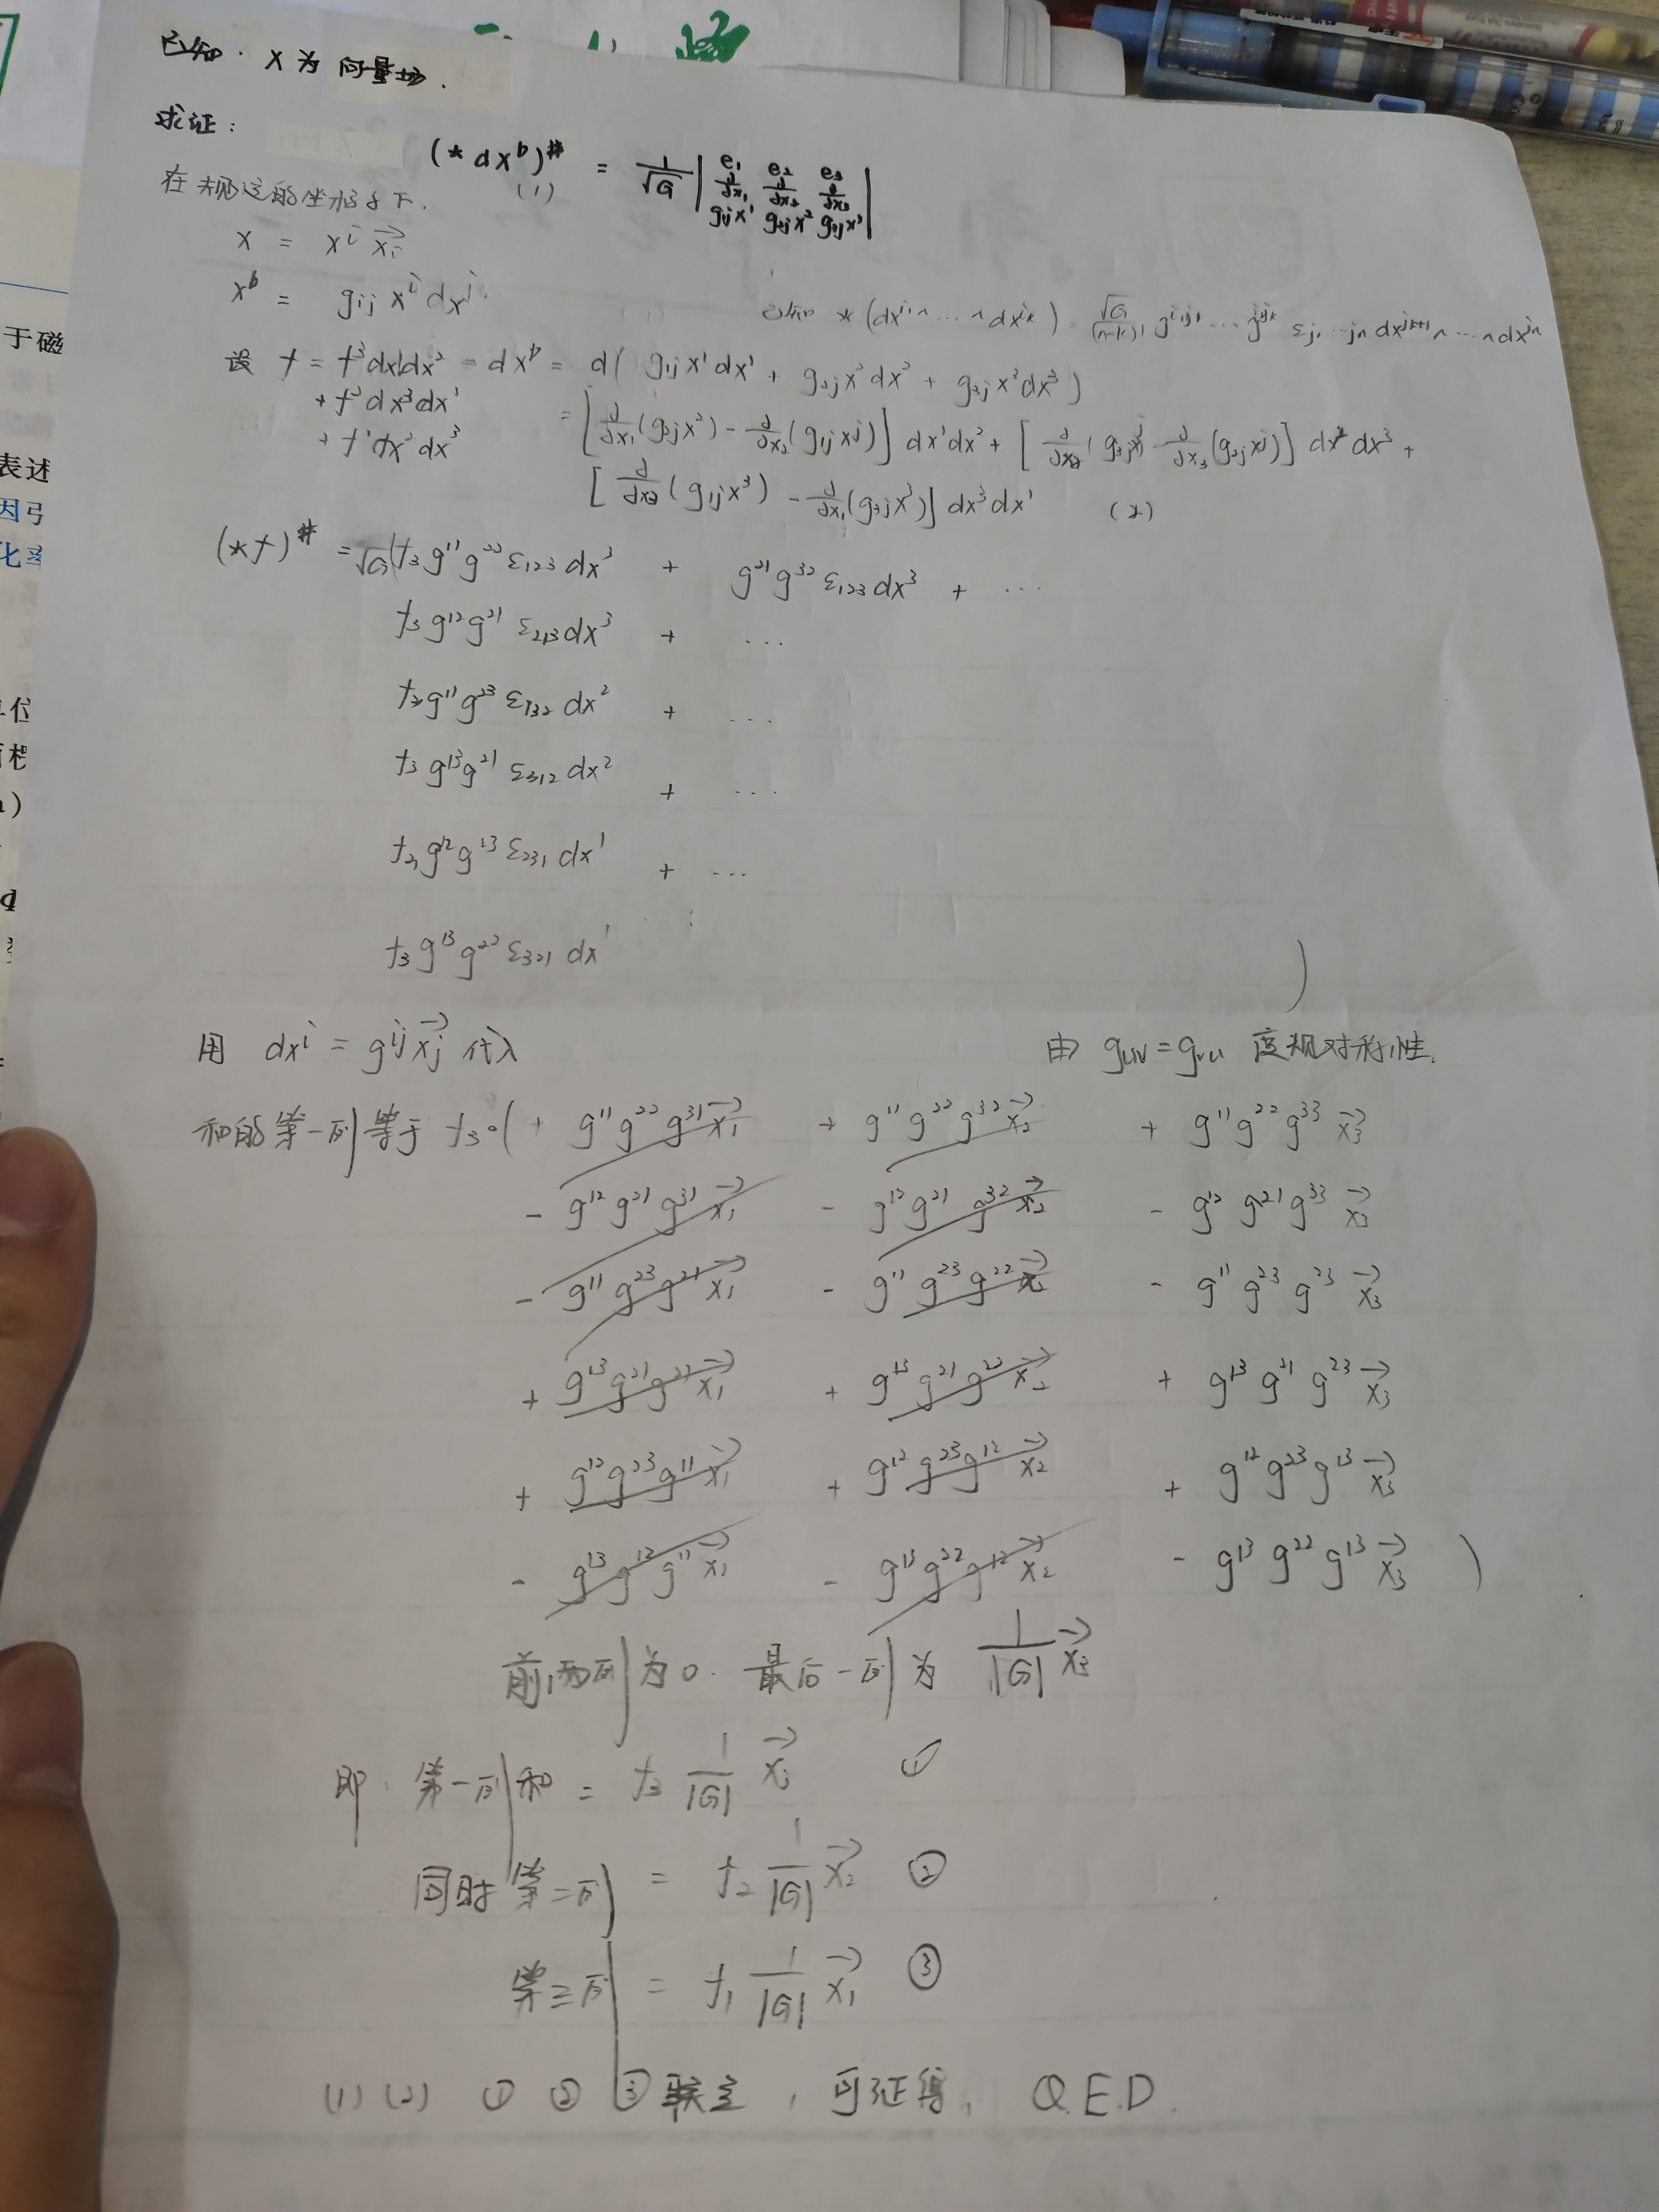 已知. X 为 向量场.
求证:
(* dX^b)^# = 1/√G | e_1 e_2 e_3 ∂/∂x_1 ∂/∂x_2 ∂/∂x_3 g_{1j}x^1 g_{2j}x^2 g_{3j}x^3 |
(1)
在 规定的坐标系下.
X = x^i \vec{x_i}
X^b = g_{ij} x^i dx^j.
已知 *(dx^{i_1}∧…∧dx^{i_k}) \frac{√G}{(n-k)!} g^{i_1j_1}…g^{i_kj_k} ε_{j_1…j_n} dx^{j_{k+1}}∧…∧dx^{j_n}
设 f = f^3dx^1dx^2 = dX^b = d( g_{1j}x^1dx^1 + g_{2j}x^2dx^2 + g_{3j}x^3dx^3 )
+ f^2dx^3dx^1 = [∂/∂x_1(g_{2j}x^2) - ∂/∂x_2(g_{1j}x^j)] dx^1dx^2 + [∂/∂x_2(g_{3j}x^j) - ∂/∂x_3(g_{2j}x^j)] dx^2dx^3 +
+ f^1dx^2dx^3
[∂/∂x_3(g_{1j}x^3) - ∂/∂x_1(g_{3j}x^3)] dx^3dx^1 (2)
(*f)^# = √G(f_3g^{11}g^{22}ε_{123}dx^3 + g^{21}g^{32}ε_{123}dx^3 + …
f_3g^{12}g^{21}ε_{213}dx^3 + …
f_3g^{11}g^{23}ε_{132}dx^2 + …
f_3g^{13}g^{21}ε_{312}dx^2 + …
f_3g^{12}g^{23}ε_{231}dx^1 + …
f_3g^{13}g^{22}ε_{321}dx^1 )
用 dx^i = g^{ij}\vec{x_j} 代入
由 g_{uv} = g_{vu} 度规对称性.
和的第一列等于 f_3·( + g^{11}g^{22}g^{31}\vec{x_1} + g^{11}g^{22}g^{32}\vec{x_2} + g^{11}g^{22}g^{33}\vec{x_3}
- g^{12}g^{21}g^{31}\vec{x_1} - g^{12}g^{21}g^{32}\vec{x_2} - g^{12}g^{21}g^{33}\vec{x_3}
- g^{11}g^{23}g^{21}\vec{x_1} - g^{11}g^{23}g^{22}\vec{x_2} - g^{11}g^{23}g^{23}\vec{x_3}
+ g^{13}g^{21}g^{21}\vec{x_1} + g^{13}g^{21}g^{22}\vec{x_2} + g^{13}g^{21}g^{23}\vec{x_3}
+ g^{12}g^{23}g^{11}\vec{x_1} + g^{12}g^{23}g^{12}\vec{x_2} + g^{12}g^{23}g^{13}\vec{x_3}
- g^{13}g^{12}g^{11}\vec{x_1} - g^{13}g^{22}g^{12}\vec{x_2} - g^{13}g^{22}g^{13}\vec{x_3} )
前两列为0. 最后一列为 1/|G| \vec{x_3}
即: 第一列和 = f_3 1/|G| \vec{x_3} ①
同时第二列 = f_2 1/|G| \vec{x_2} ②
第三列 = f_1 1/|G| \vec{x_1} ③
(1) (2) ① ② ③ 联立, 可证得, Q.E.D.
于磁
表述
因弓
化率